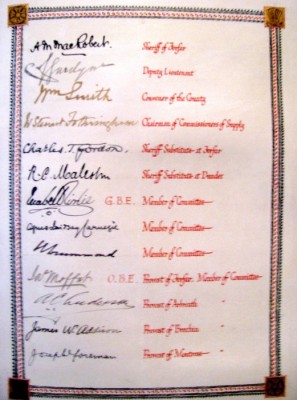 A. M. MacRobert. Sheriff of Forfar
Deputy Lieutenant
Wm Smith Convener of the County
W Steuart Fotheringham Chairman of Commissioners of Supply
Charles T. Gordon. Sheriff Substitute at Forfar
R. C. Malcolm Sheriff Substitute at Dundee
G.B.E. Member of Committee
Lindsay Carnegie Member of Committee
Member of Committee
Jas Moffat O.B.E. Provost of Forfar. Member of Committee
A. C. Anderson Provost of Arbroath
James W. Addison Provost of Brechin "
Joseph Foreman Provost of Montrose "